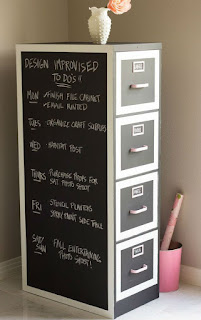 DESIGN IMPROVISED
TO DO'S!!
MON ✓FINISH FILE CABINET
✓EMAIL
TUES -ORGANIZE CRAFT SUPPLIES
WED - POST
THURS -PURCHASE PROPS FOR
SAT PHOTO SHOOT
FRI -STENCIL PLANTERS
-SPRAY PAINT SIDE TABLE
SAT/
SUN FALL ENTERTAINING
PHOTO SHOOT!